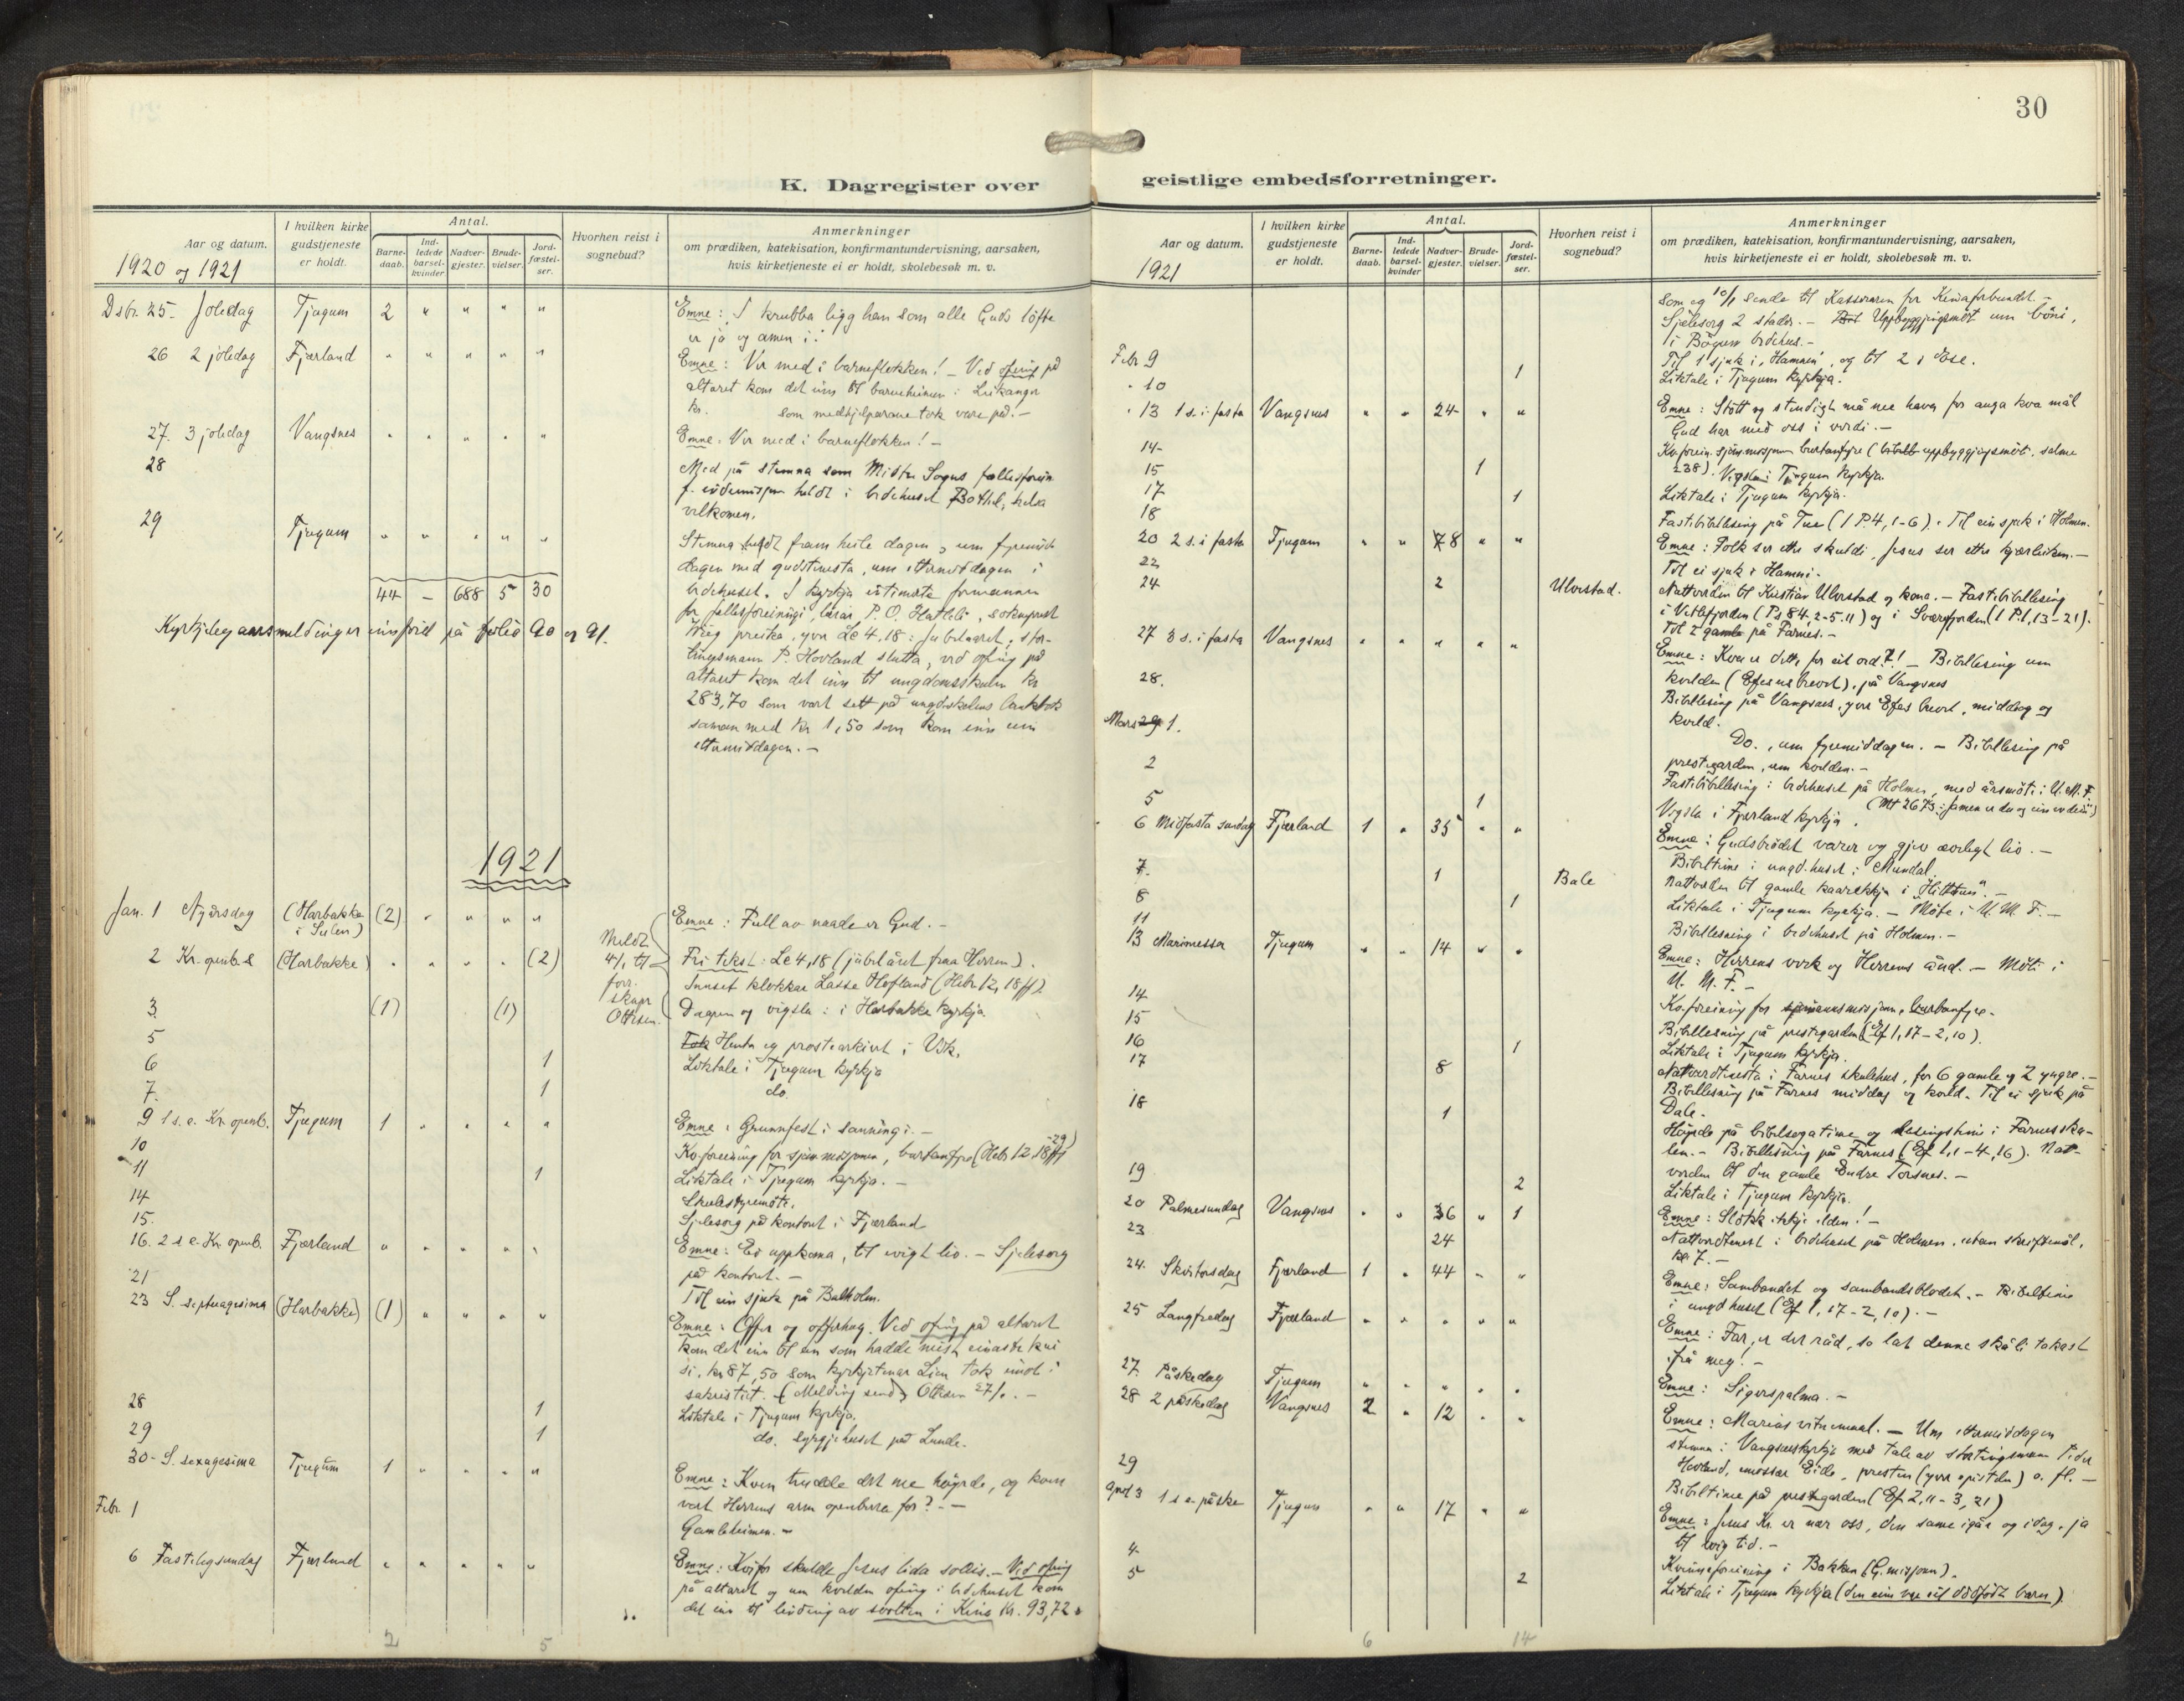 30
K. Dagregister over
geistlige embedsforretninger.
Aar og datum.
1920 og 1921
I hvilken kirke
gudstjeneste
er holdt.
Antal.
Barne-
daab.
Ind-
ledede
barsel-
kvinder.
Nadver-
gjester.
Brude-
vielser.
Jord-
fæstel-
ser.
Hvorhen reist i
sognebud?
Anmerkninger
om prædiken, katekisation, konfirmantundervisning, aarsaken,
hvis kirketjeneste ei er holdt, skolebesøk m. v.
Dsbr. 25. Joledag Tjugum 2 " " " " Emne: I krubba ligg han som alle Guds löfte
er ja og amen i.
26 2 joledag Fjærland " " " " " Emne: Ver med i barneflokken! - Ved ofring på
altaret kom det inn til barneheimen i Leikanger
kr. som medhjelparane tok vare på. -
27. 3 joledag Vangsnes " " " " " Emne. Ver med i barneflokken! -
28 Med på stemna som Midtre Sogns fellesforein.
heldt i bedehuset Bethel,
velkomen.
29 Tjugum " " " " " Stemna heldt fram heile dagen, um fyremid-
dagen med gudstenesta, um ettermiddagen i
44 - 688 5 30 bedehuset. I kyrkja formannen
for fellesforeiningi, lærar P. O. Hatleli, sokneprest
Kyrkjeleg aarsmelding er innförd på folio 90 og 91. preika, yver Lc 4,18: Jubelaaret, stor-
tingsmann P. Hovland slutta, ved ofring på
altaret kom det inn til ungdomsskulen kr
283,70 som vart sett på ungdskulens bankbok
saman med kr 1,50 som kom inn um
ettermiddagen. -
1921
Jan. 1 Nyårsdag (Harbakke
i Sulen) (2) " " " " Emne: Full av naade er Gud. -
2 Kr. openb.s (Harbakke) " " " " (2) Meldt
4/1 til
for.
skapr
Ottesen. Fri tekst: Lc 4,18 (jubelåret fraa Herren).
Innsett klokkar Lasse Hofland (Hebr. 12, 18 ff).
3. (1) (1) Dagen og vigsla: i Harbakke kyrkja.
5 Tok Henta eg prostearkivet i Vik.
6 1 Liktale i Tjugum kyrkja
7. 1 do.
9 1 s. e. Kr. openb. Tjugum 1 " " " " Emne: Grunnfest i sanningi. -
10 Kv.foreining for sjømmisjonen, burtanfyre (Hebr 12. 18 ff -29)
11 1 Liktale i Tjugum kyrkja. -
14 Skulestyremöte.
15. Sjelesorg på kontoret i Fjærland
16. 2 s e. Kr. openb. Fjærland " " " " " Emne: Ei uppkoma, til evigt liv. - Sjelesorg
på kontoret. -
21 Til ein sjuk på Balholm.
23 S. septuagesima (Harbakke) (1) " " " " Emne: Offer og offerhug. Ved ofring på altaret
kom det inn til ein som hadde mist einaste kui
si, kr 87,50 som kyrkjetenar Lien tok imot i
sakristiet. (Melding send Ottesen 27/1. -
28 1 Liktale i Tjugum kyrkja.
29 1 do. syrgjehuset på Lunde.
30 - S. sexagesima Tjugum 1 " " " " Emne: Kven trudde det me höyrde, og kven
vart Herrens arm openberra for? - -
Febr. 1 Gamleheimen. -
6 Fastelagsundag Fjærland " " " " " Emne: Kvifor skulde Jesus lida solleis. - Ved ofring
på altaret og um kvelden ofring i bedehuset kom
det inn til linding av svolten i Kina kr. 93,72
2 5
Aar og datum.
1921
I hvilken kirke
gudstjeneste
er holdt.
Antal.
Barne-
daab.
Ind-
ledede
barsel-
kvinder
Nadver-
gjester.
Brude-
vielser.
Jord-
fæstel-
ser.
Hvorhen reist i
sognebud?
Anmerkninger
om prædiken, katekisation, konfirmantundervisning, aarsaken,
hvis kirketjeneste ei er holdt, skolebesøk m. v.
som eg 10/2 sende til Kasseraren for Kinaforbundet. -
Sjelesorg 2 stader. - Uppbyggjingsmöt um böni,
i bedehus. -
Febr 9 Til 1 sjuk i "Hamnen", og til 2 i Ese.
" 10 1 Liktale i Tjugum kyrkja.
" 13 1 s. i fasta Vangsnes " " 24 " " Emne: Stött og stendigt må me hava for auga kva mål
Gud har med oss i verdi. -
14 Kv.forein. sjömmisjonen burtanfyre ( uppbyggjingsmöt. salme
15 1 238). Vigsla i Tjugum kyrkja.
17 1 Liktale i Tjugum kyrkja.
18 Fastebibellesing på Tue (1 P. 4, 1-6). Til ein sjuk i Holmen.
20 2 s. i fasta Tjugum " " 78 " " Emne: Folk ser etter skuldi, Jesus ser etter kjærleiken. -
22 Til ei sjuk i Hamni.
24 2 Ulvestad. Nattverden til Kristian Ulvestad og kona. - Fastebibellesing
i Vetlefjorden (Ps 84, 2-5.11) og i Sværefjorden (1 P. 1, 13-21).
Til 2 gamle på Farnes. -
27 3 s. i fasta Vangsnes " " " " " Emne: Kva er dette for eit ord?! - Bibellesing um
kvelden (Efesusbrevet), på Vangsnes
28. Bibellesing på Vangsnes, yver Efes brevet, middag og
kveld.
Mars 1. Do., um fyremiddagen. - Bibellesing på
prestegarden, um kvelden. -
2 Fastebibellesing i bedehuset på Holmen, med årsmöte i U. M. F.
(Mt 26 73: Jamen er du og ein av dei")
5 1 Vigsla i Fjærland kyrkja.
6 Midfasta sundag Fjærland 1 " 35 " " Emne: Gudsbrödet varer og gjev ævelegt liv. -
7. Bibeltime i ungd.huset i Mundal.
8 1 Bale Nattverden til gamle kaarekkja i "Hittun". -
11 1 Liktale i Tjugum kyrkja. - Möte i U. M. F. -
Bibellesning i bedehuset på Holmen. -
13 Marimessa Tjugum " " 14 " " Emne: Herrens verk og Herrens ånd. - Möte i
U. M. F. -
14 Kv.foreining for sjømannsmisjonen, burtanfyre.
15 Bibellesning på prestegarden (Ef 1, 17 - 2, 10).
16 1 Liktale i Tjugum kyrkja.
17 8 Nattverdtenesta i Farnes skulehus, for 6 gamle og 2 yngre. -
Bibellesning på Farnes middag og kveld. Til ei sjuk på
Dale.
18 1 Höyrde på bibelsogatime og lesingstime i Farnes sku-
len. - Bibellesning på Farnes (Ef 1, 1 - 4, 16). Nat-
verden til den gamle Endre Torsnes. -
19 2 Liktale i Tjugum kyrkja.
20 Palmesundag Vangsnes " " 36 " 1 Emne: Slökk ikkje elden! -
23 24 Nattverdtenest i bedehuset på Holmen, utan skriftemål,
kl. 7. -
24. Skirtorsdag Fjærland 1 " 44 " " Emne: Sambandet og sambandsblodet. - Bibeltime
i ungdhuset (Ef 1, 17 - 2, 10). -
25 Langfredag Fjærland " " " " " Emne: Far, er det råd, so lat denne skåli takast
ifrå meg! -
27. Påskedag Tjugum " " " " " Emne: Sigerspalma. -
28 2 påskedag Vangsnes 2 " 12 " " Emne: Marias vitnemaal. - Um ettermiddagen
stemna i Vangsneskyrkja med tale av stortingsmann Peder
Hovland, emissær Eide, presten (yver epistelen) o. fl. -
29 Bibeltime på prestegarden (Ef 2, 11 - 3, 21)
April 3 1 s e. påske Tjugum " " 17 " " Emne: Jesus Kr. er nær oss, den same igår og idag, ja
til evig tid. -
4. Kvinneforeining i Bakken (G. misjonen).
5 2 Liktale i Tjugum kyrkja (den eine var eit dödfödt barn).
6 14